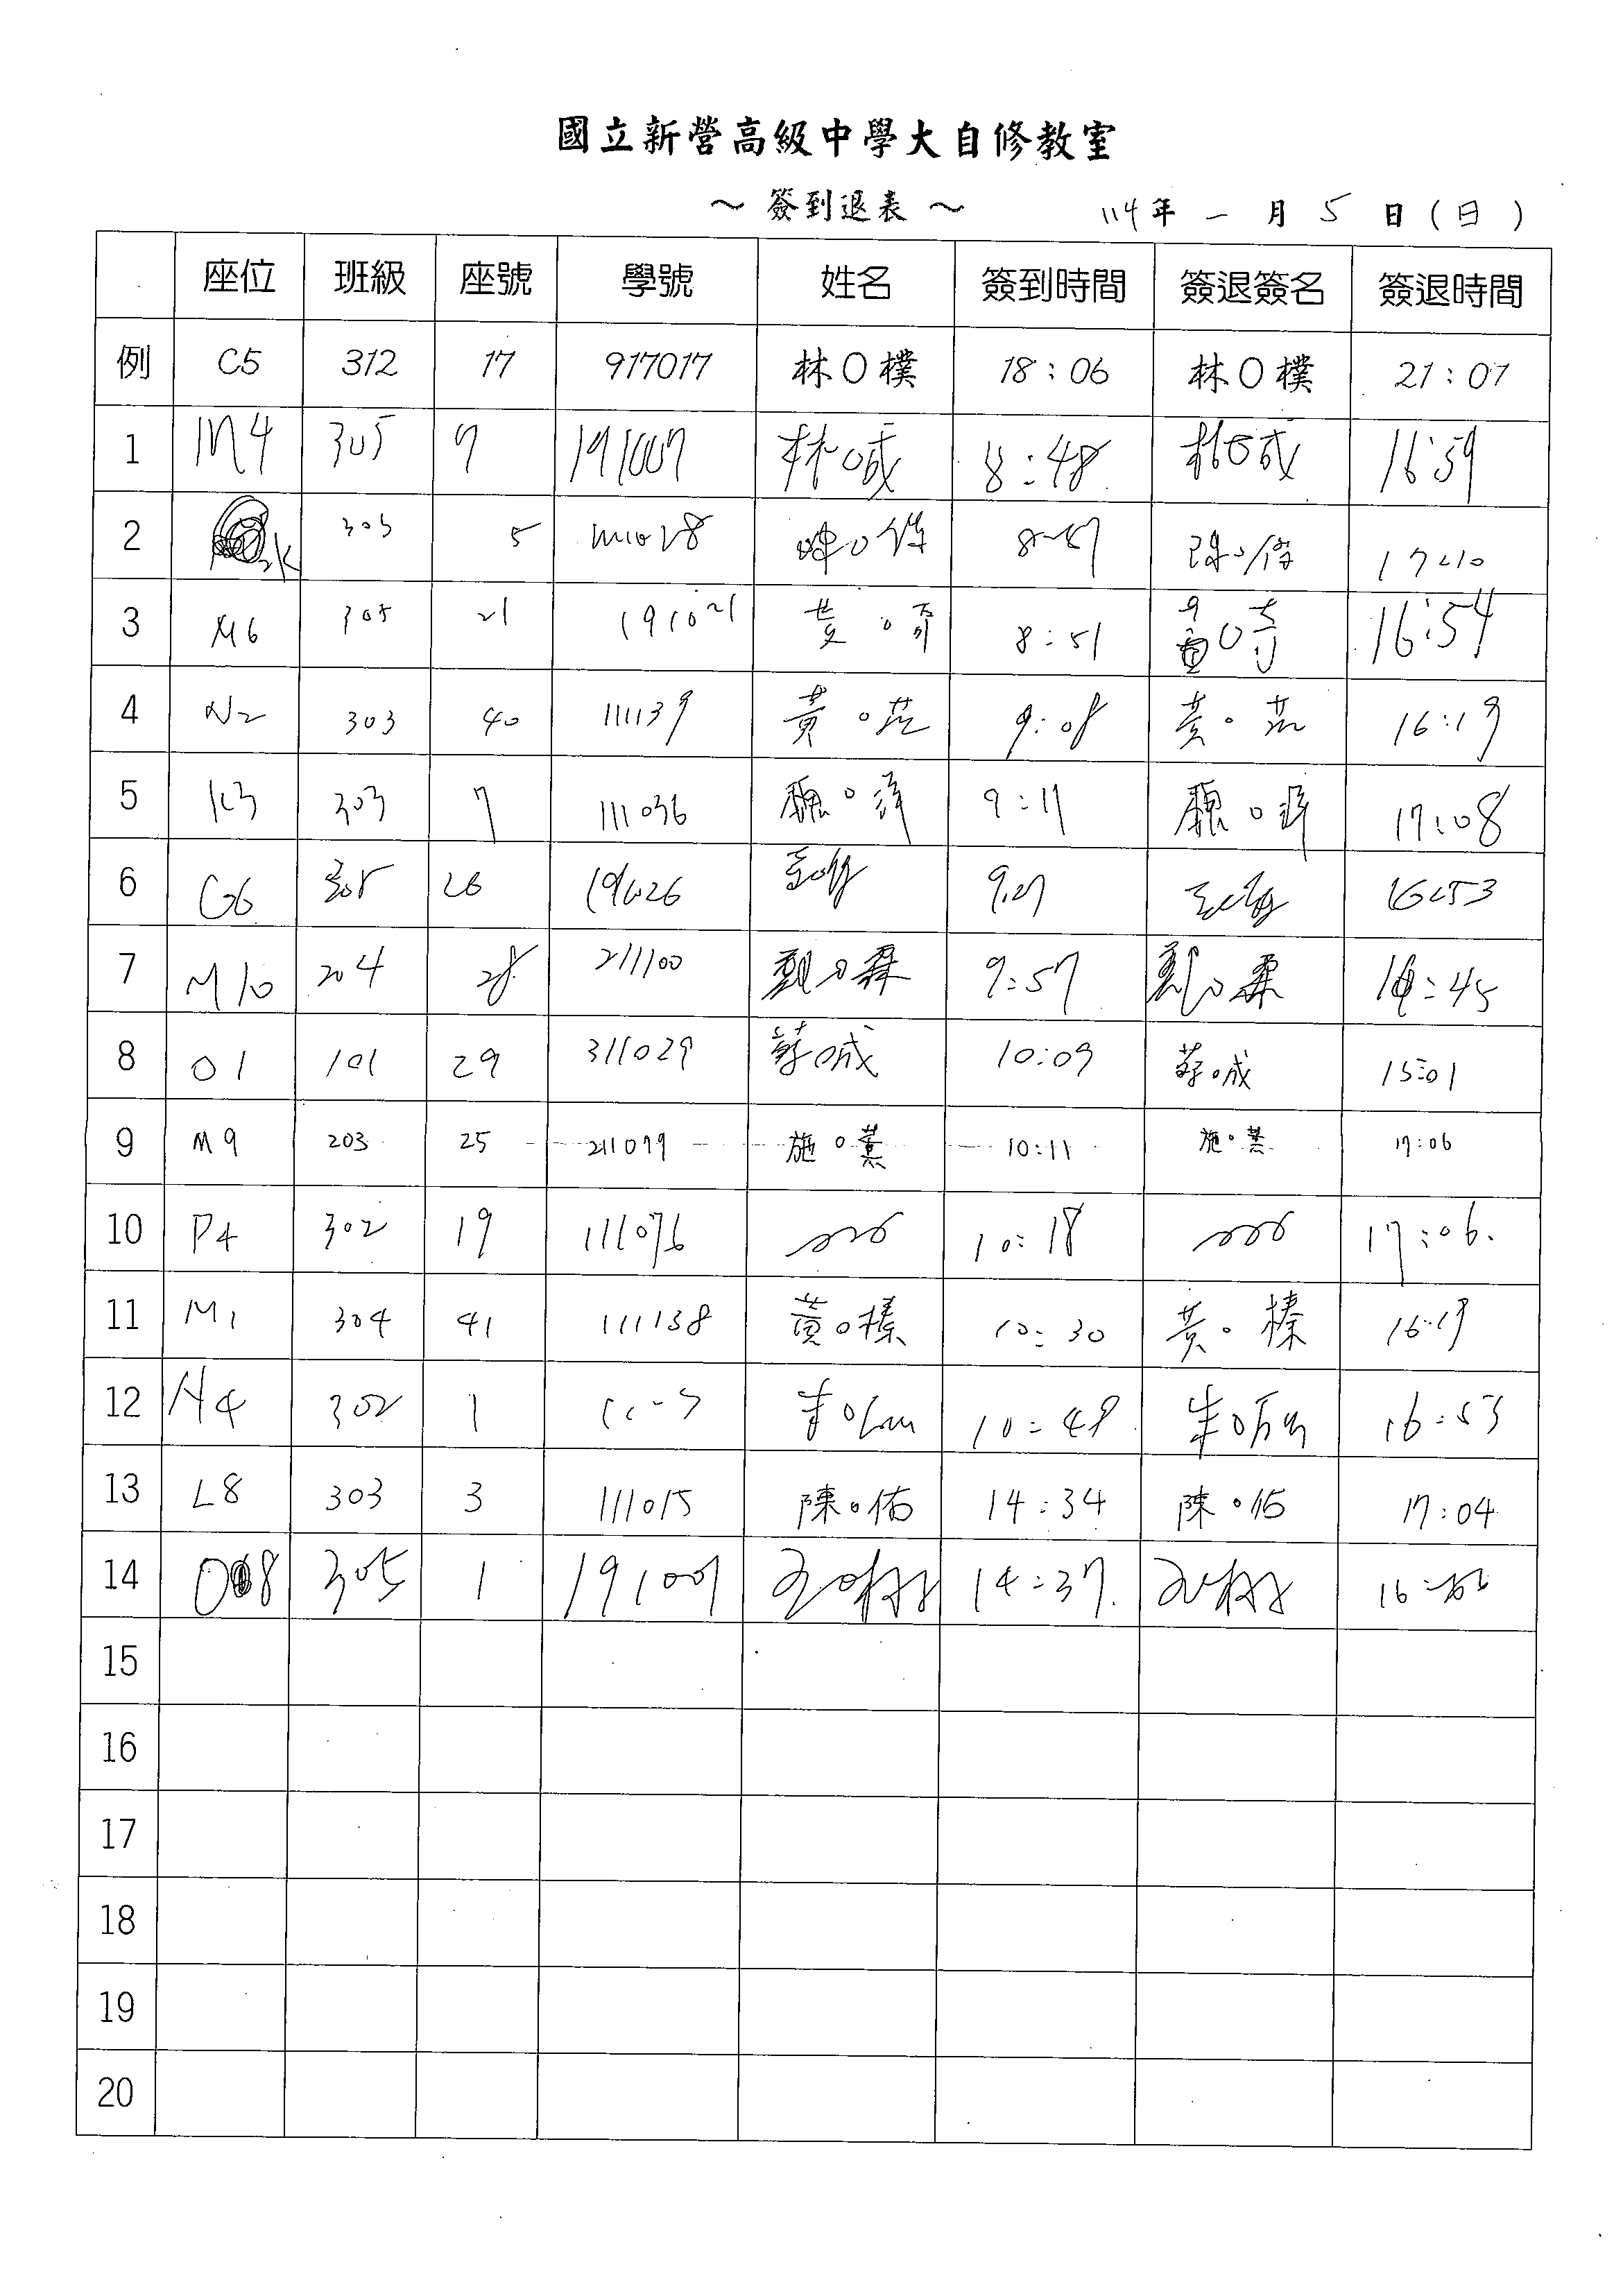 國立新營高級中學大自修教室
～ 簽到退表 ～ 114年 一 月 5 日(日)
座位 班級 座號 學號 姓名 簽到時間 簽退簽名 簽退時間
例 C5 312 17 917017 林O樸 18:06 林O樸 21:07
1 M4 305 7 191007 林O 8:48 林O 16:59
2 303 5 陳O 17:10
3 M6 305 21 191021 8:51 16:54
4 N2 303 40 111139 黃O 9:08 黃O 16:19
5 K3 303 7 111036 魏O 9:11 魏O 17:08
6 G6 305 26 191026 16:53
7 M10 204 28 211100 9:57 :45
8 O1 101 29 311029 蔡O成 10:09 蔡O成 15:01
9 M9 203 25 211079 施O薰 10:11 施O薰 17:06
10 P4 302 19 111076 10:18 17:06.
11 M1 304 41 111138 黃O榛 10:30 黃O榛 16:19
12 302 1 朱O 10:48 朱O 16:53
13 L8 303 3 111015 陳O佑 14:34 陳O佑 17:04
14 O8 305 1 191001 14:37
15
16
17
18
19
20